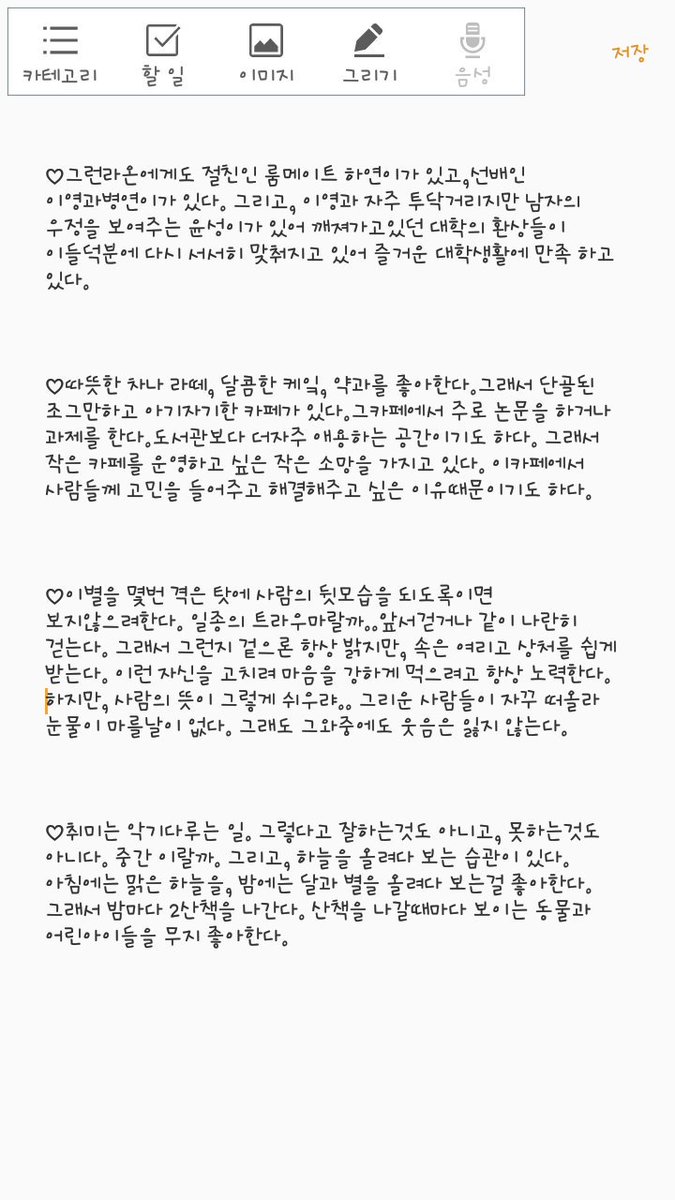 카테고리 할 일 이미지 그리기 음성 저장
♡그런라온에게도 절친인 룸메이트 하연이가 있고,선배인
이영과병연이가 있다. 그리고, 이영과 자주 투닥거리지만 남자의
우정을 보여주는 윤성이가 있어 깨져가고있던 대학의 환상들이
이들덕분에 다시 서서히 맞춰지고 있어 즐거운 대학생활에 만족 하고
있다.
♡따뜻한 차나 라떼, 달콤한 케잌, 약과를 좋아한다.그래서 단골된
조그만하고 아기자기한 카페가 있다.그카페에서 주로 논문을 하거나
과제를 한다.도서관보다 더자주 애용하는 공간이기도 하다. 그래서
작은 카페를 운영하고 싶은 작은 소망을 가지고 있다. 이카페에서
사람들께 고민을 들어주고 해결해주고 싶은 이유때문이기도 하다.
♡이별을 몇번 격은 탓에 사람의 뒷모습을 되도록이면
보지않으려한다. 일종의 트라우마랄까..앞서걷거나 같이 나란히
걷는다. 그래서 그런지 겉으론 항상 밝지만, 속은 여리고 상처를 쉽게
받는다. 이런 자신을 고치려 마음을 강하게 먹으려고 항상 노력한다.
하지만, 사람의 뜻이 그렇게 쉬우랴.. 그리운 사람들이 자꾸 떠올라
눈물이 마를날이 없다. 그래도 그와중에도 웃음은 잃지 않는다.
♡취미는 악기다루는 일. 그렇다고 잘하는것도 아니고, 못하는것도
아니다. 중간 이랄까. 그리고, 하늘을 올려다 보는 습관이 있다.
아침에는 맑은 하늘을, 밤에는 달과 별을 올려다 보는걸 좋아한다.
그래서 밤마다 2산책을 나간다. 산책을 나갈때마다 보이는 동물과
어린아이들을 무지 좋아한다.